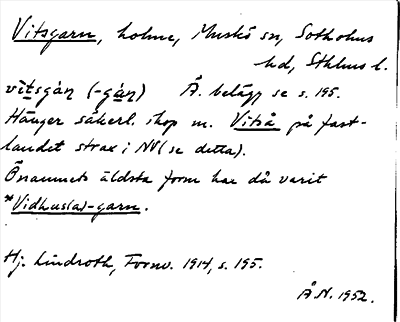 Vitsgarn, holme, Muskö sn, Sotholms
hd, Sthlms l.
vītsgàɳ (-gáɳ) Ä. belägg se s. 195.
Hänger säkerl. ihop m. Vitså på fast-
landet strax i NV (se detta).
Önamnets äldsta form har då varit
*Vidhus(a)-garn.
Hj. Lindroth, Fornv. 1914, s. 195.
Å N. 1952.